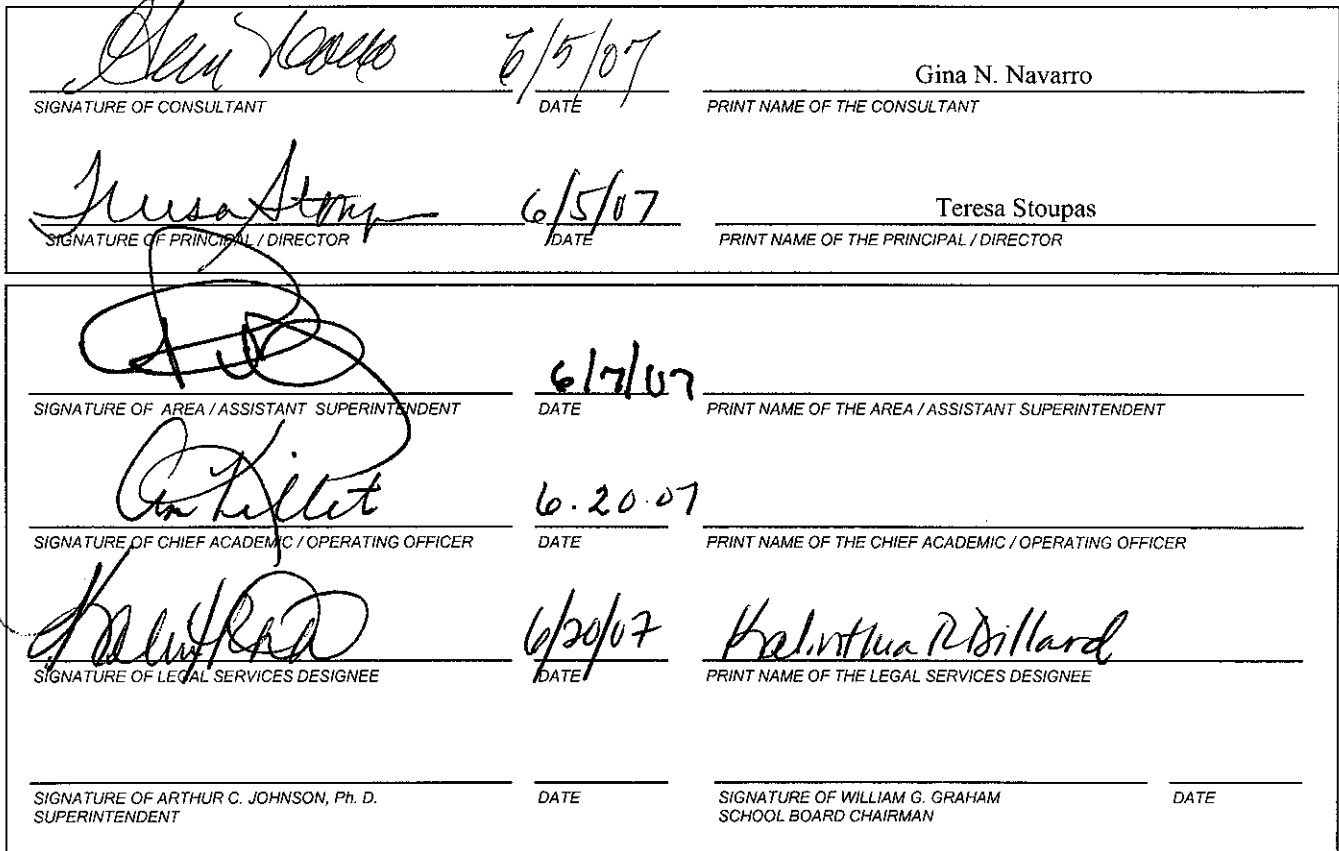 6/5/07 Gina N. Navarro
SIGNATURE OF CONSULTANT DATE PRINT NAME OF THE CONSULTANT
Teresa 6/5/07 Teresa Stoupas
SIGNATURE OF PRINCIPAL / DIRECTOR DATE PRINT NAME OF THE PRINCIPAL / DIRECTOR
6/7/07
SIGNATURE OF AREA / ASSISTANT SUPERINTENDENT DATE PRINT NAME OF THE AREA / ASSISTANT SUPERINTENDENT
6.20.07
SIGNATURE OF CHIEF ACADEMIC / OPERATING OFFICER DATE PRINT NAME OF THE CHIEF ACADEMIC / OPERATING OFFICER
6/20/07 Kalinthia R Dillard
SIGNATURE OF LEGAL SERVICES DESIGNEE DATE PRINT NAME OF THE LEGAL SERVICES DESIGNEE
SIGNATURE OF ARTHUR C. JOHNSON, Ph. D. DATE SIGNATURE OF WILLIAM G. GRAHAM DATE
SUPERINTENDENT SCHOOL BOARD CHAIRMAN